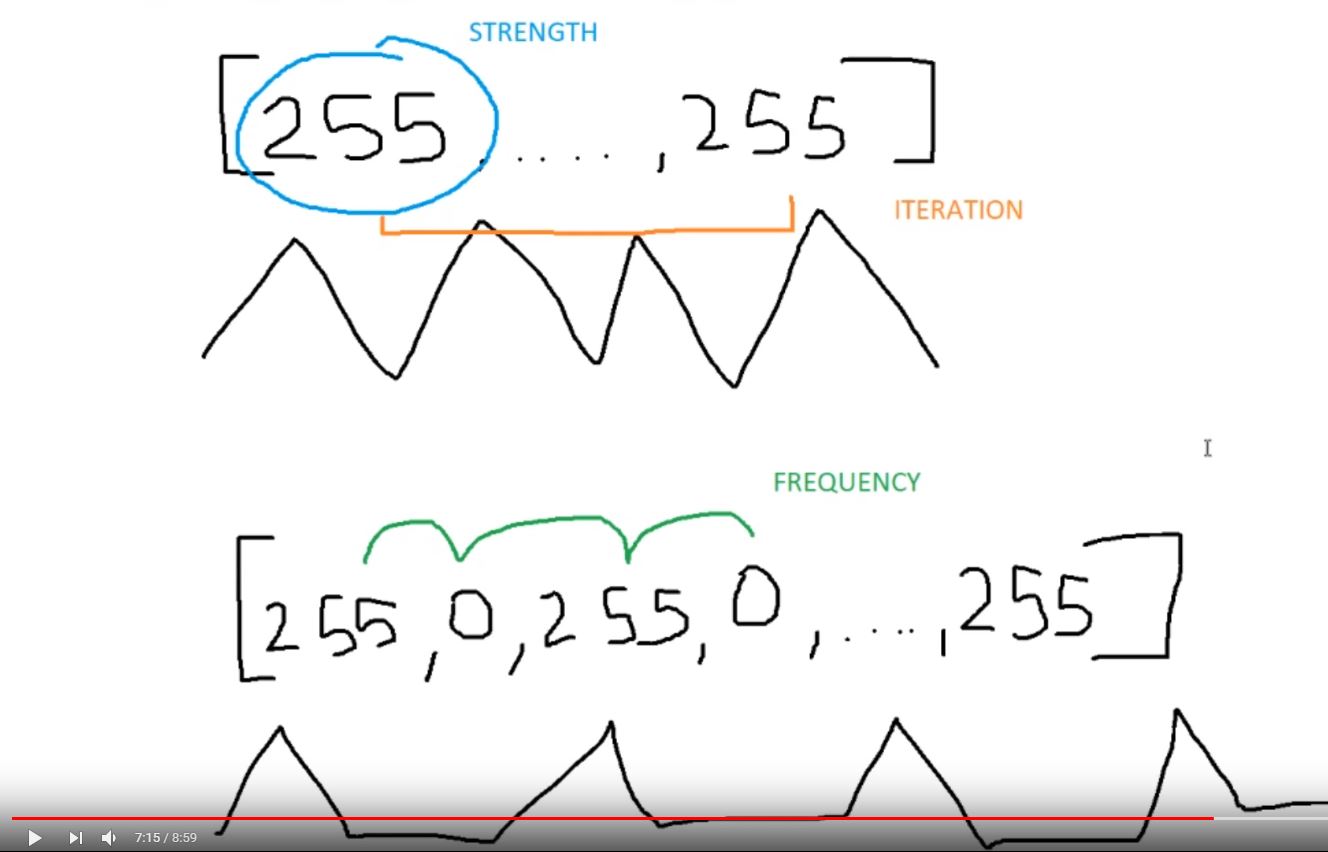 STRENGTH
[255, ...., 255]
ITERATION
FREQUENCY
[255,0,255,0,....,255]
7:15 / 8:59